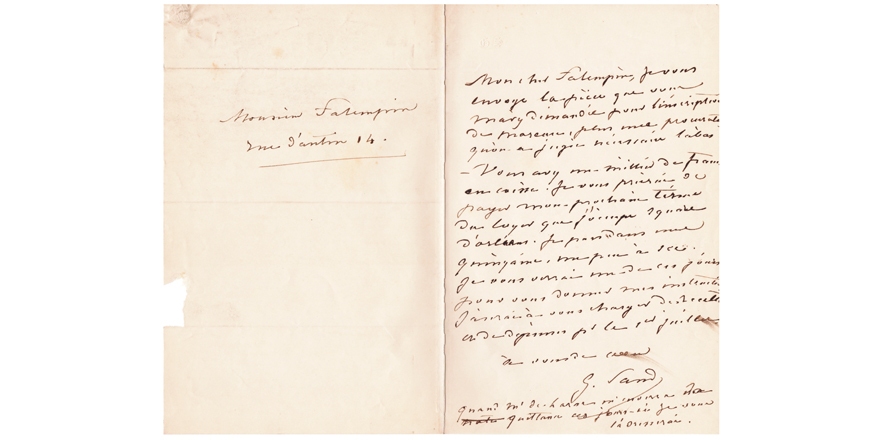 Monsieur Falempin
rue d'antin 14.
Mon cher Falempin, je vous
envoye la pièce que vous
m'avez demandée pour l'inscription
de , plus une procuration
qu'on a jugée nécessaire là bas
– Vous avez un millier de francs
en caisse. Je vous prierai de
payer mon prochain terme
du loyer que j'occupe square
d'orléans. Je pars dans une
quinzaine, un peu à sec.
Je vous verrai un de ces jours
pour vous donner mes instructions
J'aurai à vous charger de recettes
et de dépenses pr le 1er juillet.
à vous de cœur
G. Sand
Quand Mr de m'enverra
quittance ces jours-ci je vous
l'adresserai.